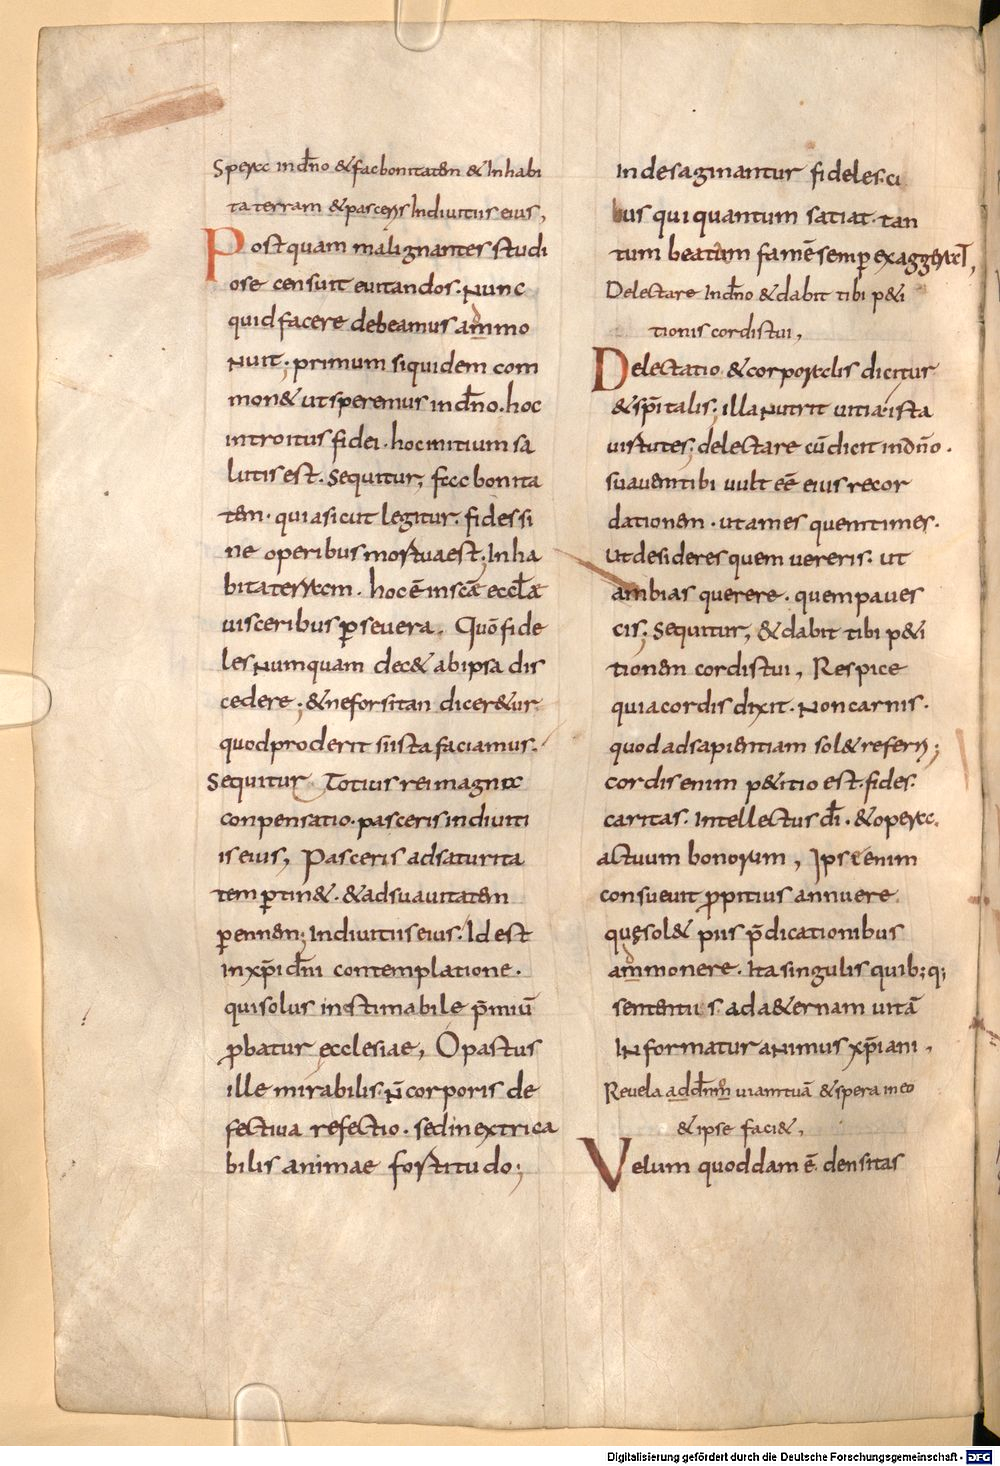 Spera indno & fac bonitatem & Inhabi
ta terram & pasceris Indiuitiis eius,
Postquam malignantes studi
ose censuit euitandos. Nunc
quid facere debeamus admmo
nuit; primum siquidem com
mon& ut speremus indno. hoc
introitus fidei. hoc initium sa
lutis est. sequitur; fac bonita
tem. quia sicut legitur. fides si
ne operibus mortua est; Inha
bita terram. hoc ē in scā eccłæ
uisceribus pseuera. Quō fide
les numquam dec& ab ipsa dis
cedere; & ne forsitan dicer&ur
quod proderit si ista faciamus.
Sequitur Totius rei magna
conpensatio. pasceris in diuiti
is eius, Pasceris ad saturita
tem ptin&. & ad suauitatem
pennem; In diuitiis eius. Id est
in xp̄i dn̄i contemplatione.
qui solus inestimabile p̄miū
pbatur ęcclesiae, O pastus
ille mirabilis. n̄ corporis de
fectiua refectio. sed inextrica
bilis animae fortitudo;
Inde saginantur fideles. ci
bus qui quantum satiat. tan
tum beatum famē semp exaggerat,
Delectare Indno & dabit tibi p&i
tionis cordis tui,
Delectatio & corporalis dicitur
& sp̄italis; illa nutrit uitia. ista
uirtutes; delectare cū dicit in dn̄o.
suauem tibi uult eē eius recor
dationem. ut ames quem times.
ut desideres quem uereris. ut
ambias querere. quem paues
cis; Sequitur, & dabit tibi p&i
tionem cordis tui, Respice
quia cordis dixit. Non carnis.
quod ad sapientiam sol& referri;
cordis enim p&itio est. fides.
caritas. Intellectus dī. & opera.
actuum bonorum, Ipse enim
consueuit ppitius annuere
quę sol& piis p̄dicationibus
admmonere. Ita singulis quib;q;
sententiis ad a&ernam uitā
Informatur animus xp̄iani,
Reuela ad dnm uiam tuā & spera in eo
& ipse faci&,
Velum quoddam ē densitas
Digitalisierung gefördert durch die Deutsche Forschungsgemeinschaft - DFG